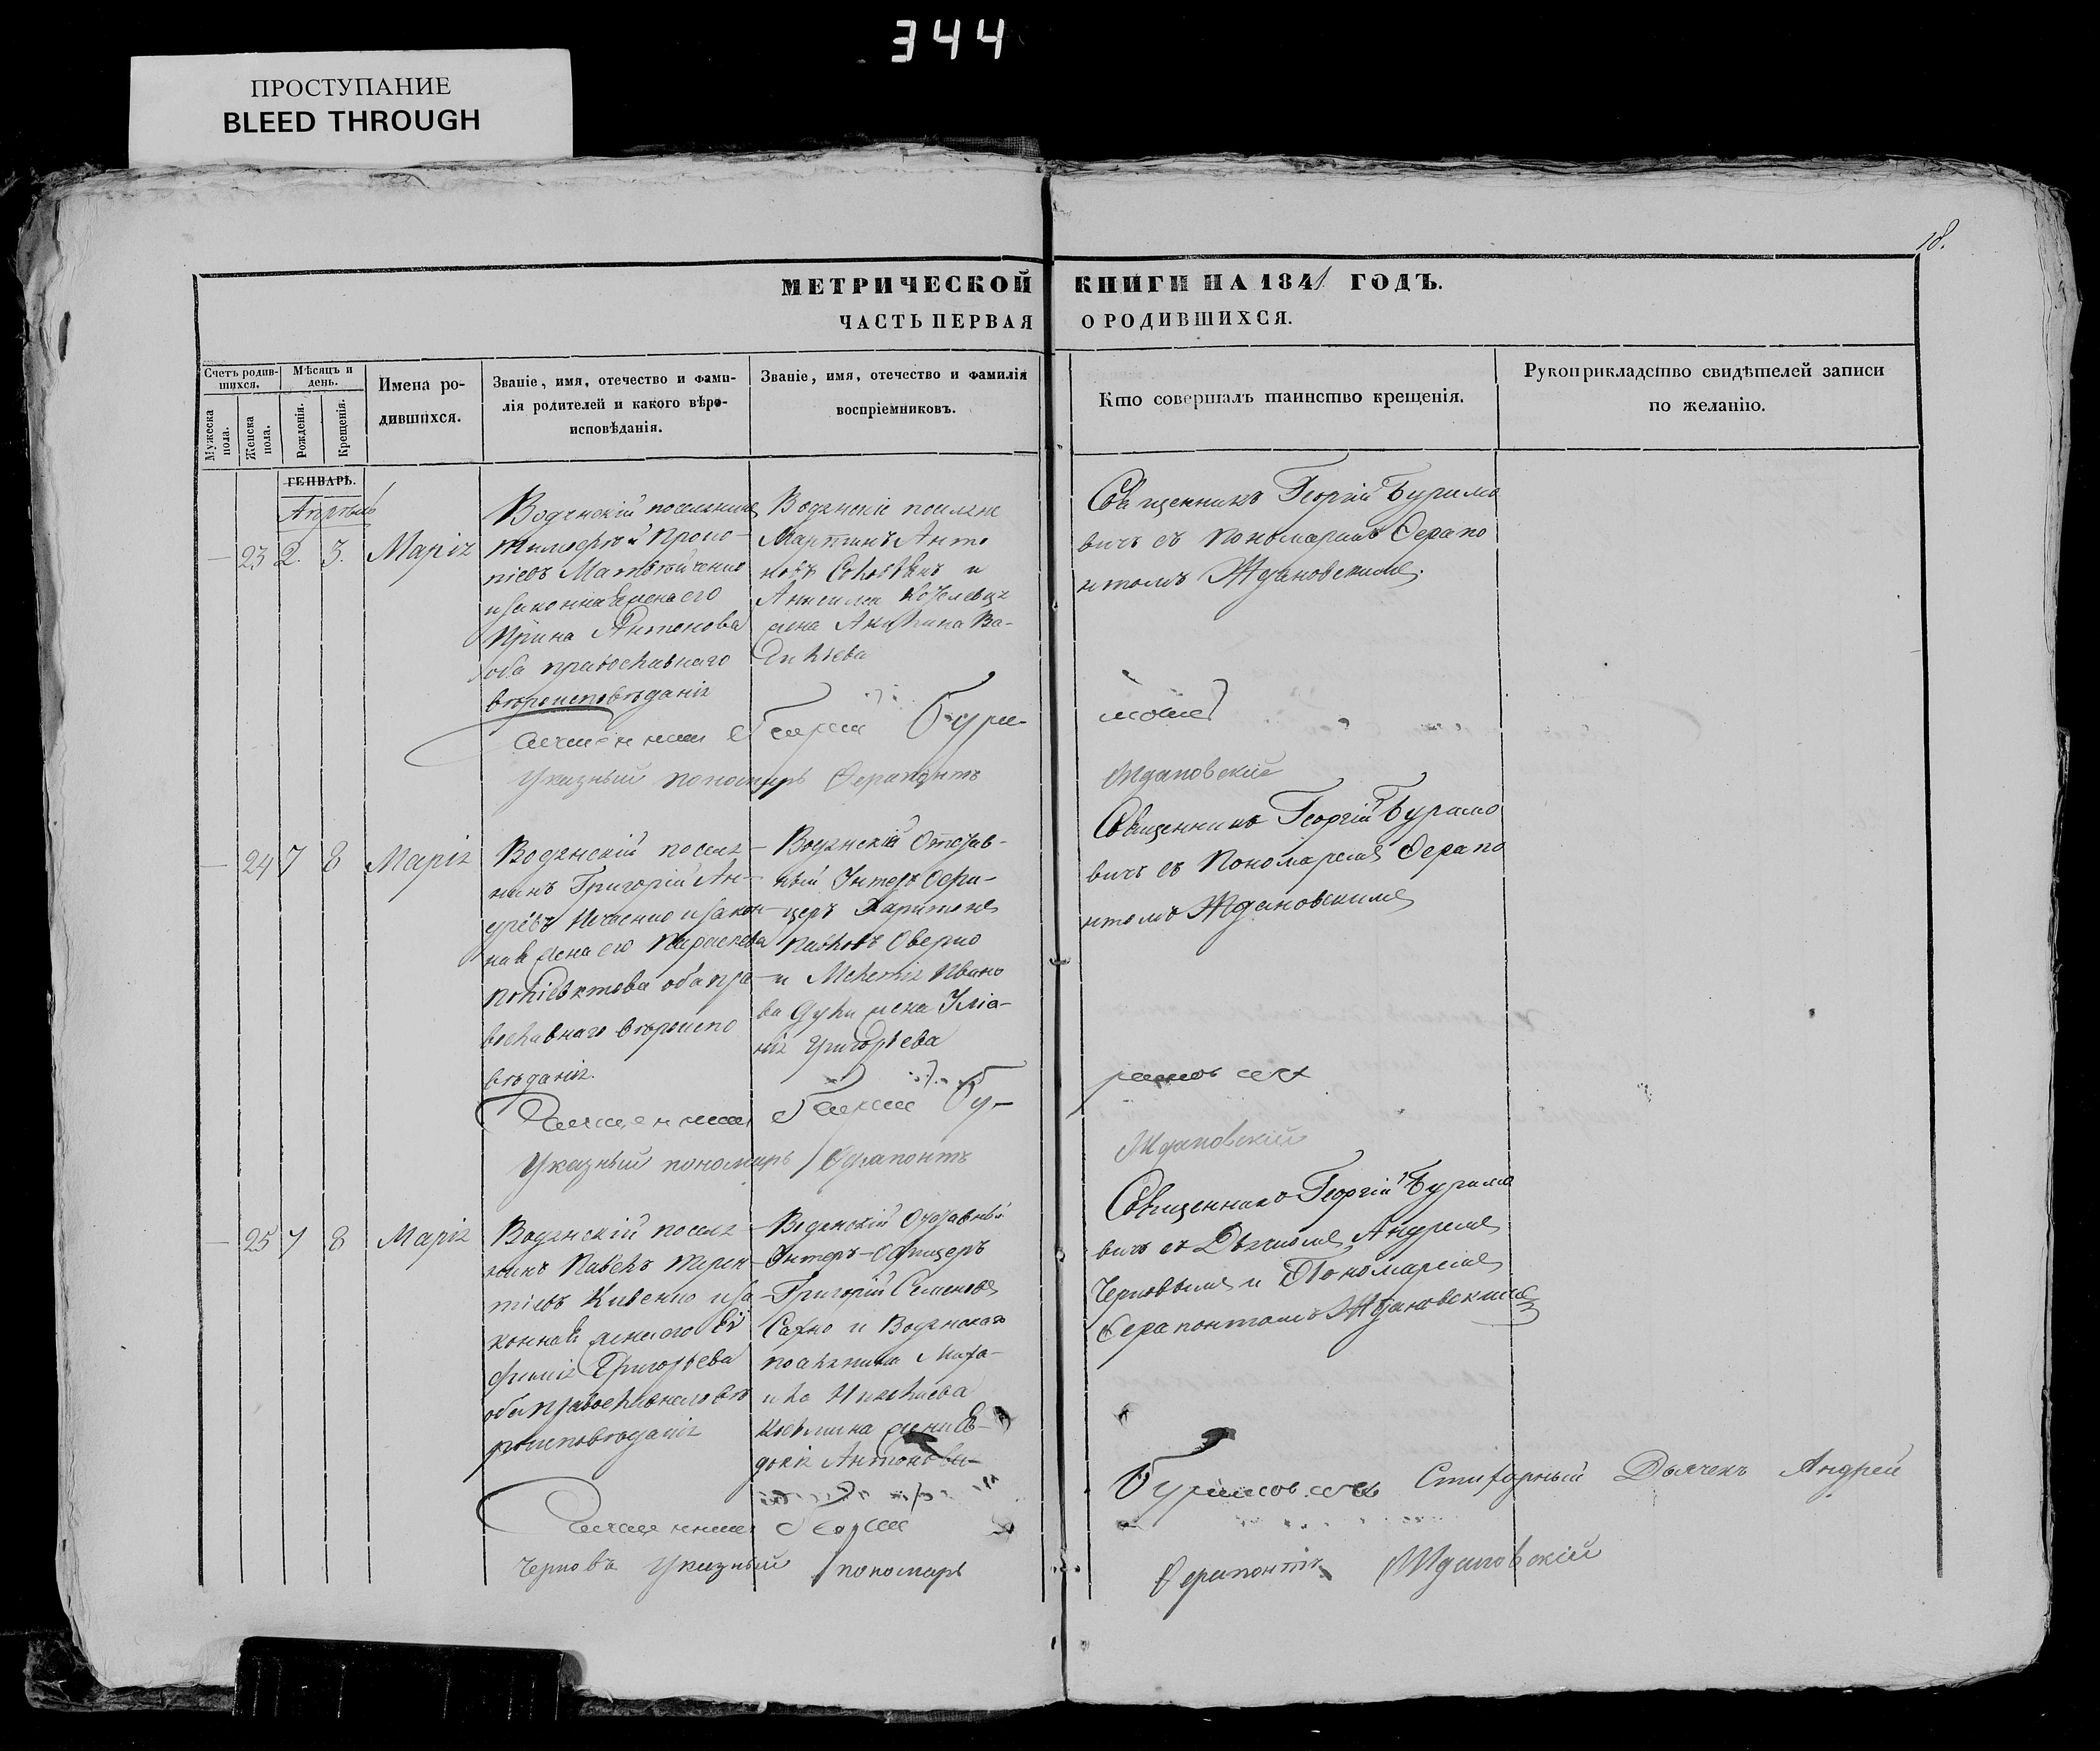 344
ПРОСТУПАНИЕ
BLEED THROUGH
18.
МЕТРИЧЕСКОЙ КНИГИ НА 1841 ГОДЪ.
ЧАСТЬ ПЕРВАЯ О РОДИВШИХСЯ.
Счетъ родив-
шихся.
Мужеска
пола.
Женска
пола.
Мѣсяцъ и
день.
Рожденія.
Крещенія.
Имена ро-
дившихся.
Званіе, имя, отечество и фами-
лія родителей и какого вѣро-
исповѣданія.
Званіе, имя, отечество и фамилія
воспріемниковъ.
Кто совершалъ таинство крещенія.
Рукоприкладство свидѣтелей записи
по желанію.
ГЕНВАРЬ.
Апрѣль
— 23 2. 3. Марія
Водянскій поселянинъ
Тимофѣй Проко-
піевъ
и законная жена его
Ирина Антонова
оба православнаго
вѣроисповѣданія
Водянскіе поселяне
Мартинъ Анто
новъ и
жена Акилина Ва-
силіева
Священникъ Георгій Буримо
вичъ съ Пономаремъ Ѳерапо
нтомъ Ждановскимъ.
Указный пономарь Ѳерапонтъ
Ждановскій
— 24 7 8 Марія
Водянскій поселя-
нинъ Григорій Ан-
дреевъ и закон-
ная жена его Параскева
Поліевктова оба пра-
вославнаго вѣроиспо
вѣданія.
Водянскій Отстав-
ный Унтеръ Офи-
церъ Харитонъ
Павловъ
Ивано
ва жена Уліа-
нія Григорьева
Священникъ Георгій Буримо
вичъ съ Пономаремъ Ѳерапо
нтомъ Ждановскимъ
Указный пономарь Ѳерапонтъ
Ждановскій
— 25 7 8 Марія
Водянскій поселя-
нинъ Павелъ Терен-
тіевъ и за
конная жена его Ев
фимія Григорьева
оба православнаго вѣ
роисповѣданія
Водянскій Отставный
Унтеръ-Офицеръ
Григорій Семеновъ
Сахно и Водянскаго
поселянина Миха-
ила
жена Ев-
докія Антонова
Священникъ Георгій Буримо
вичъ съ Дьячкомъ Андреемъ
Черновымъ и Пономаремъ
Ѳерапонтомъ Ждановскимъ
Стихарный Дьячекъ Андрей
Черновъ Указный пономарь
Ѳерапонтъ Ждановскій